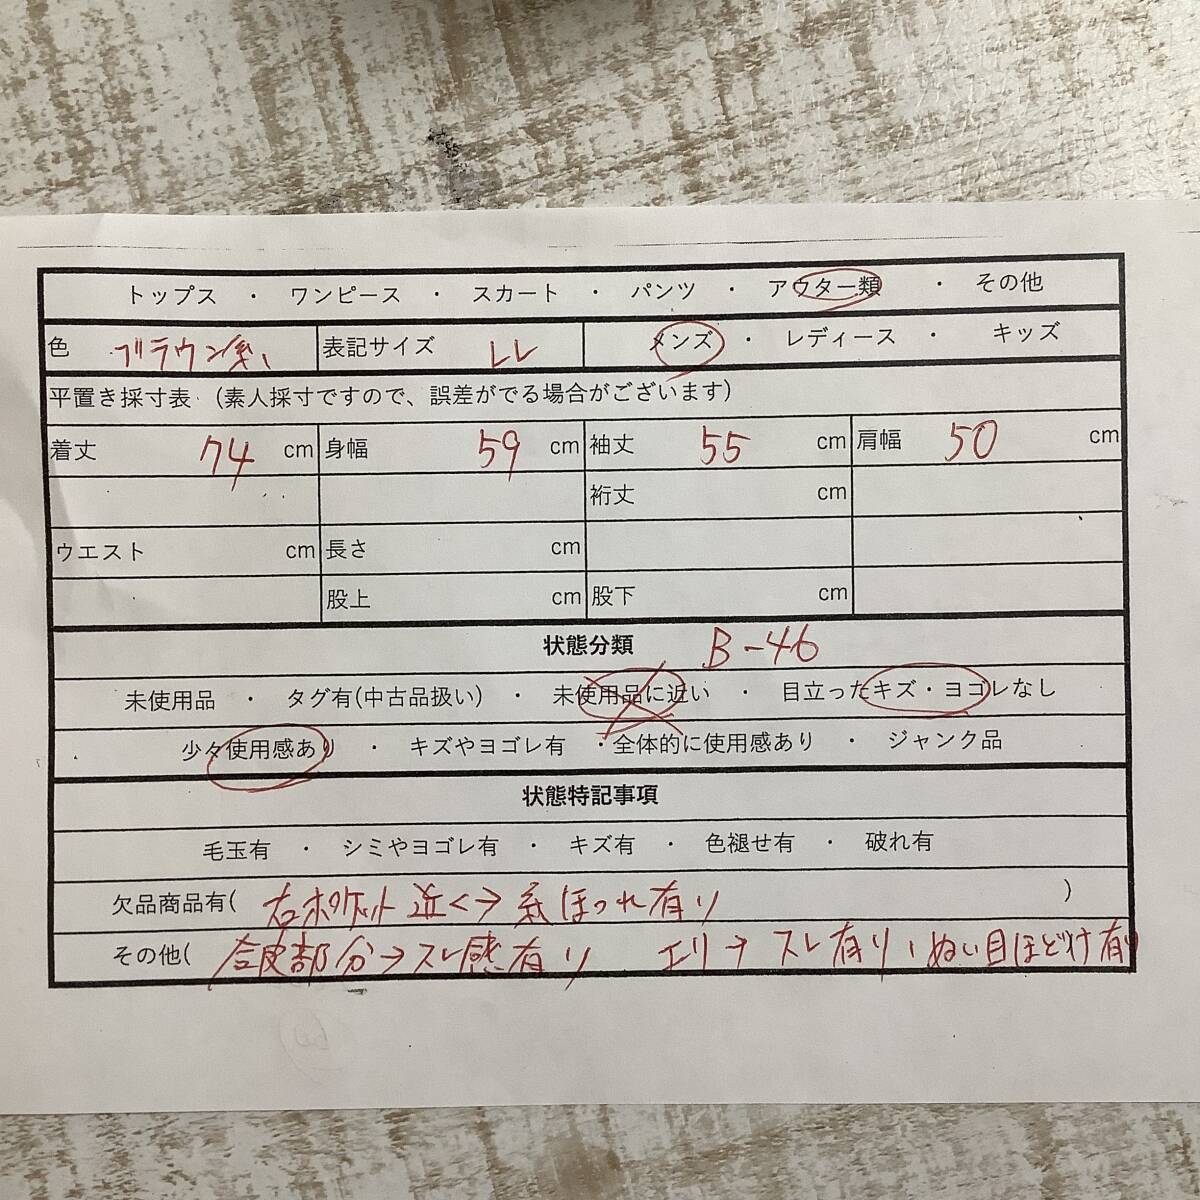 トップス ・ ワンピース ・ スカート ・ パンツ ・ アウター類 ・ その他
色 ブラウン系 表記サイズ LL メンズ ・ レディース ・ キッズ
平置き採寸表 (素人採寸ですので、誤差がでる場合がございます)
着丈 74 cm 身幅 59 cm 袖丈 55 cm 肩幅 50 cm
裄丈 cm
ウエスト cm 長さ cm
股上 cm 股下 cm
状態分類 B-46
未使用品 ・ タグ有(中古品扱い) ・ 未使用品に近い ・ 目立ったキズ・ヨゴレなし
少々使用感あり ・ キズやヨゴレ有 ・全体的に使用感あり ・ ジャンク品
状態特記事項
毛玉有 ・ シミやヨゴレ有 ・ キズ有 ・ 色褪せ有 ・ 破れ有
欠品商品有( 右ポケット近く→糸ほつれ有り )
その他( 合皮部分→スレ感有り エリ→スレ有り、ぬい目ほどけ有